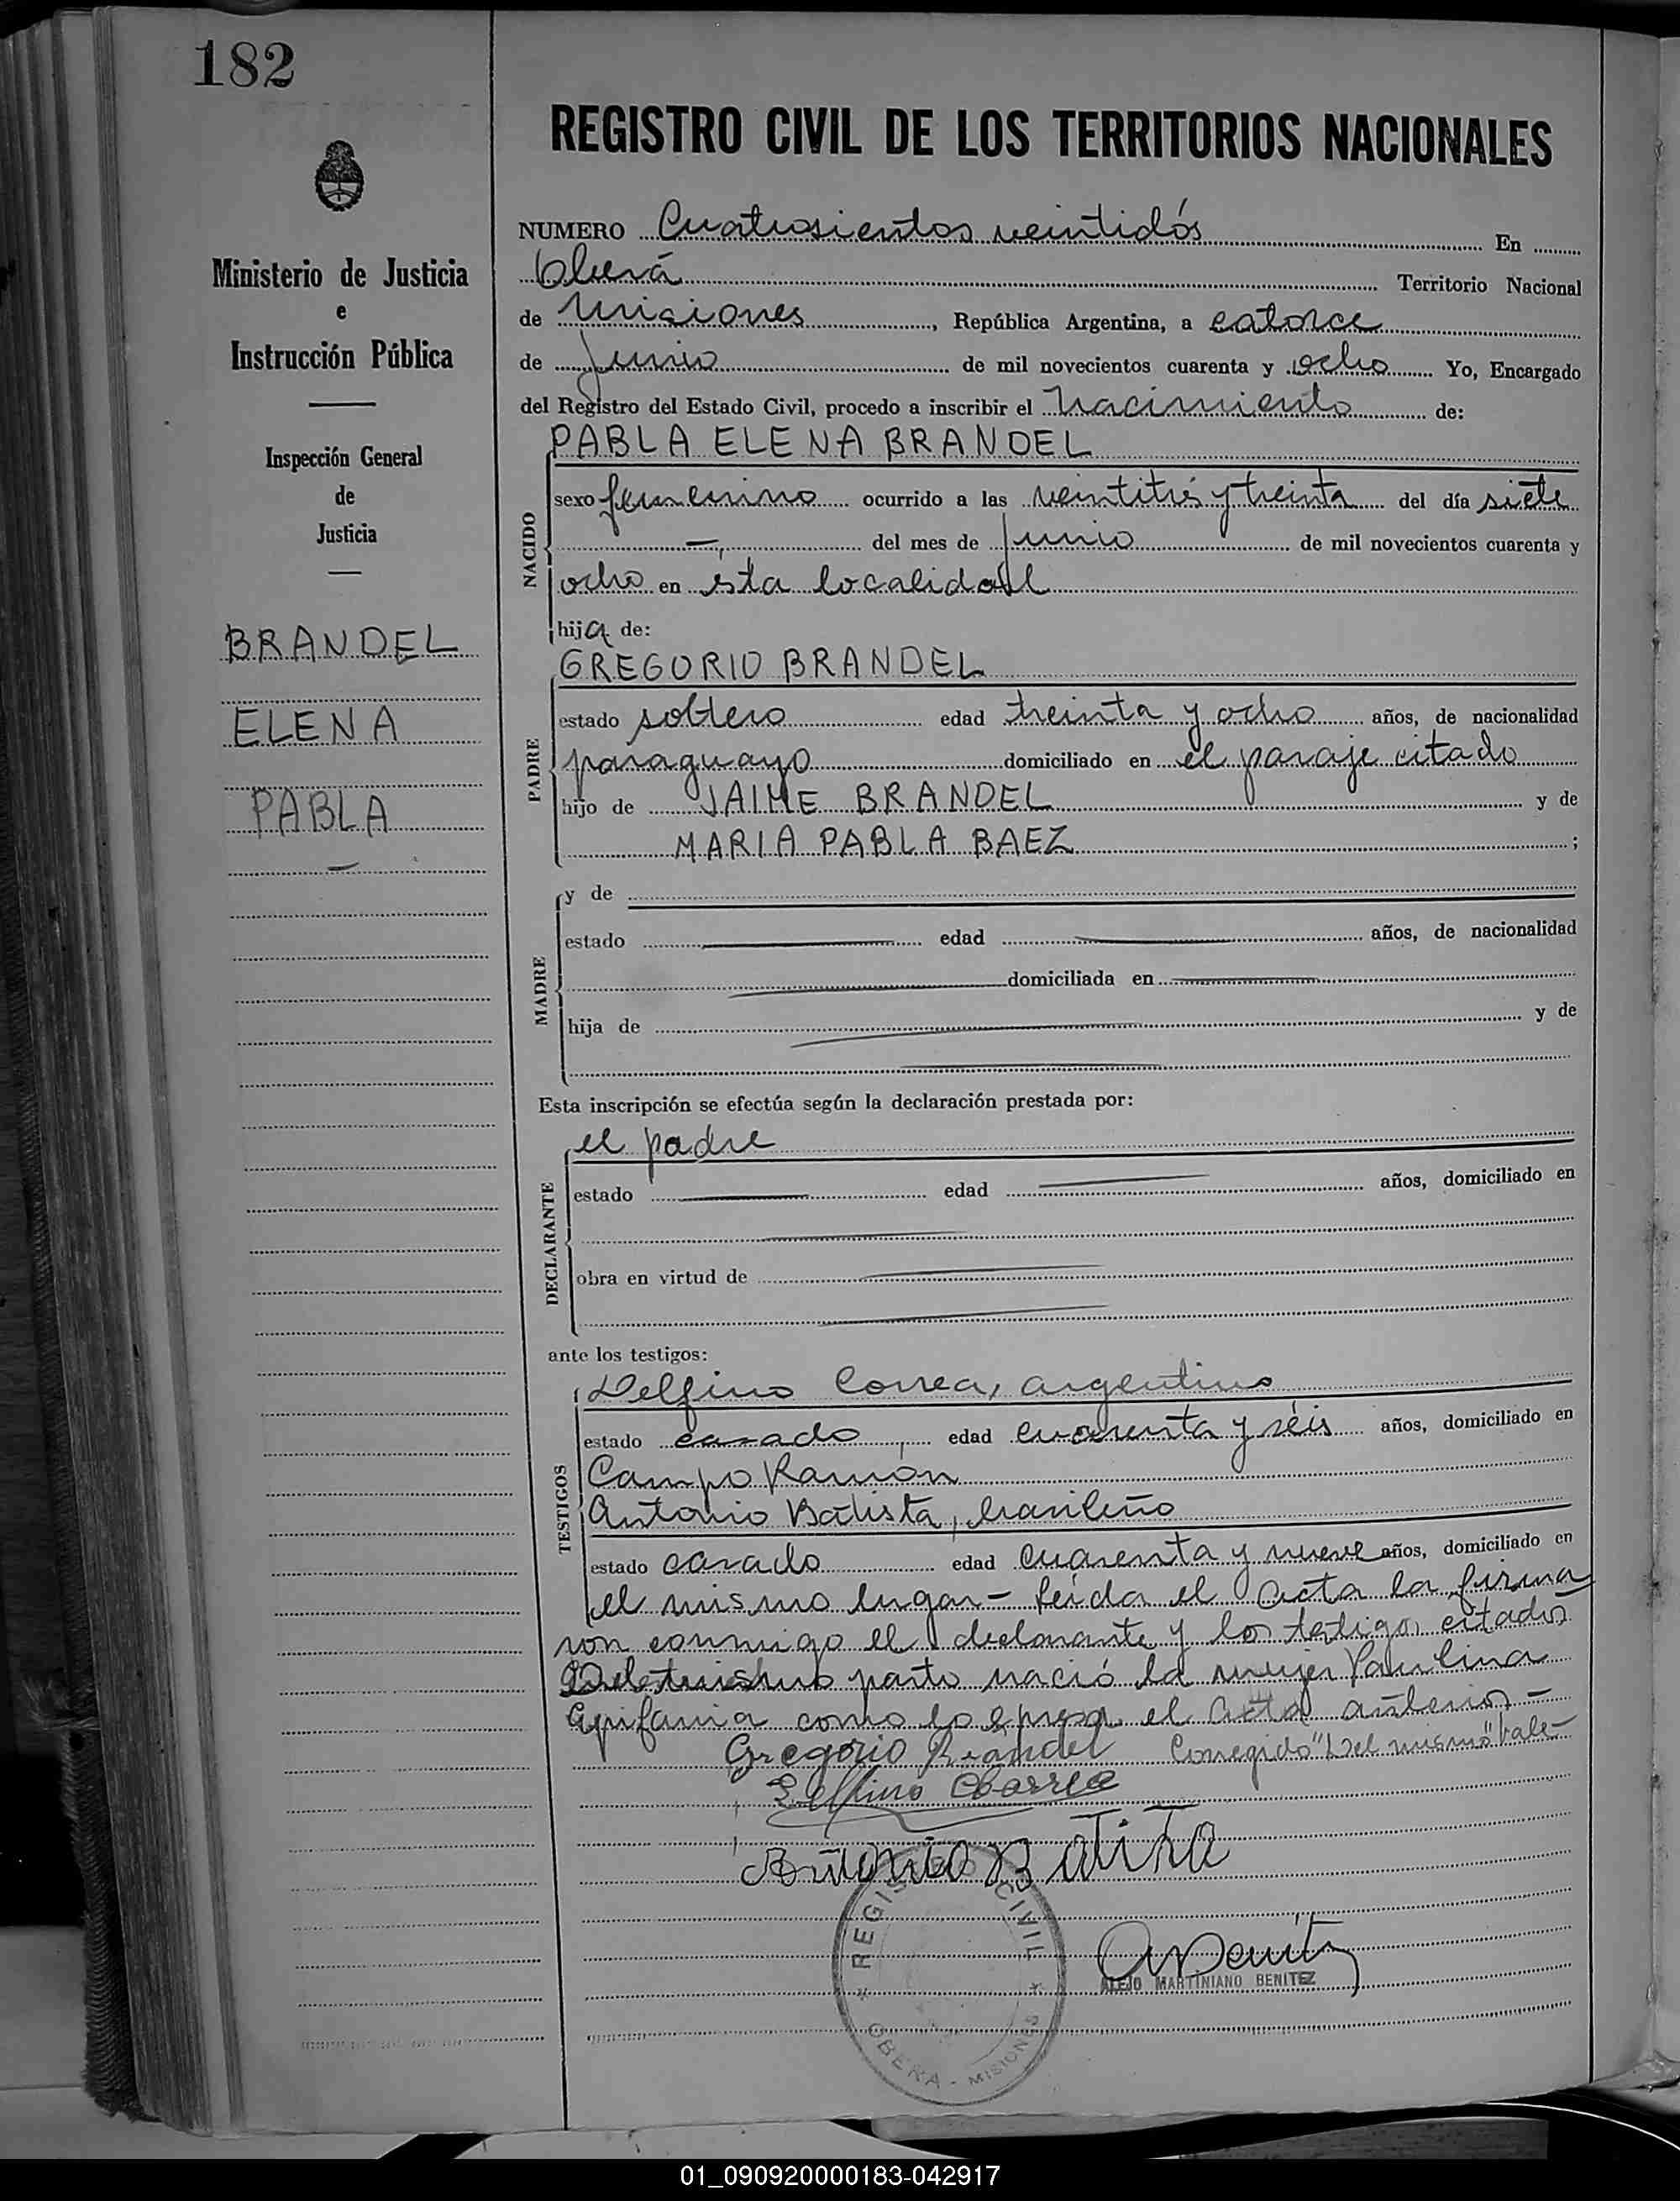 182
REGISTRO CIVIL DE LOS TERRITORIOS NACIONALES
Ministerio de Justicia
e
Instrucción Pública
Inspección General
de
Justicia
BRANDEL
ELENA
PABLA
NUMERO Cuatrosientos veintidós En
Oberá Territorio Nacional
de Misiones, República Argentina, a catorce
de Junio de mil novecientos cuarenta y ocho Yo, Encargado
del Registro del Estado Civil, procedo a inscribir el Nacimiento de:
NACIDO
PABLA ELENA BRANDEL
sexo femenino ocurrido a las veintitrés y treinta del día siete
del mes de Junio de mil novecientos cuarenta y
ocho en ésta localidad
hija de:
PADRE
GREGORIO BRANDEL
estado soltero edad treinta y ocho años, de nacionalidad
paraguayo domiciliado en el paraje citado
hijo de JAIME BRANDEL y de
MARIA PABLA BAEZ ;
MADRE
y de
estado edad años, de nacionalidad
domiciliada en
hija de y de
Esta inscripción se efectúa según la declaración prestada por:
DECLARANTE
el padre
estado edad años, domiciliado en
obra en virtud de
ante los testigos:
TESTIGOS
Delfino Correa, argentino
estado casado, edad cuarenta y séis años, domiciliado en
Campo Ramón
Antonio Batista, brasileño
estado casado edad cuarenta y nueve años, domiciliado en
el mismo lugar - Leída el acta la firma
ron conmigo el declarante y los testigos citados
Del mismo parto nació la mujer Paulina
Epifania como lo epresa el acta anterior -
Gregorio Brandel Corregido "Del mismo" Vale -
Delfino Correa
Antonio Batista
REGISTRO CIVIL
OBERA - MISIONES
ABenitz
ALEJO MARTINIANO BENITEZ
01_090920000183-042917